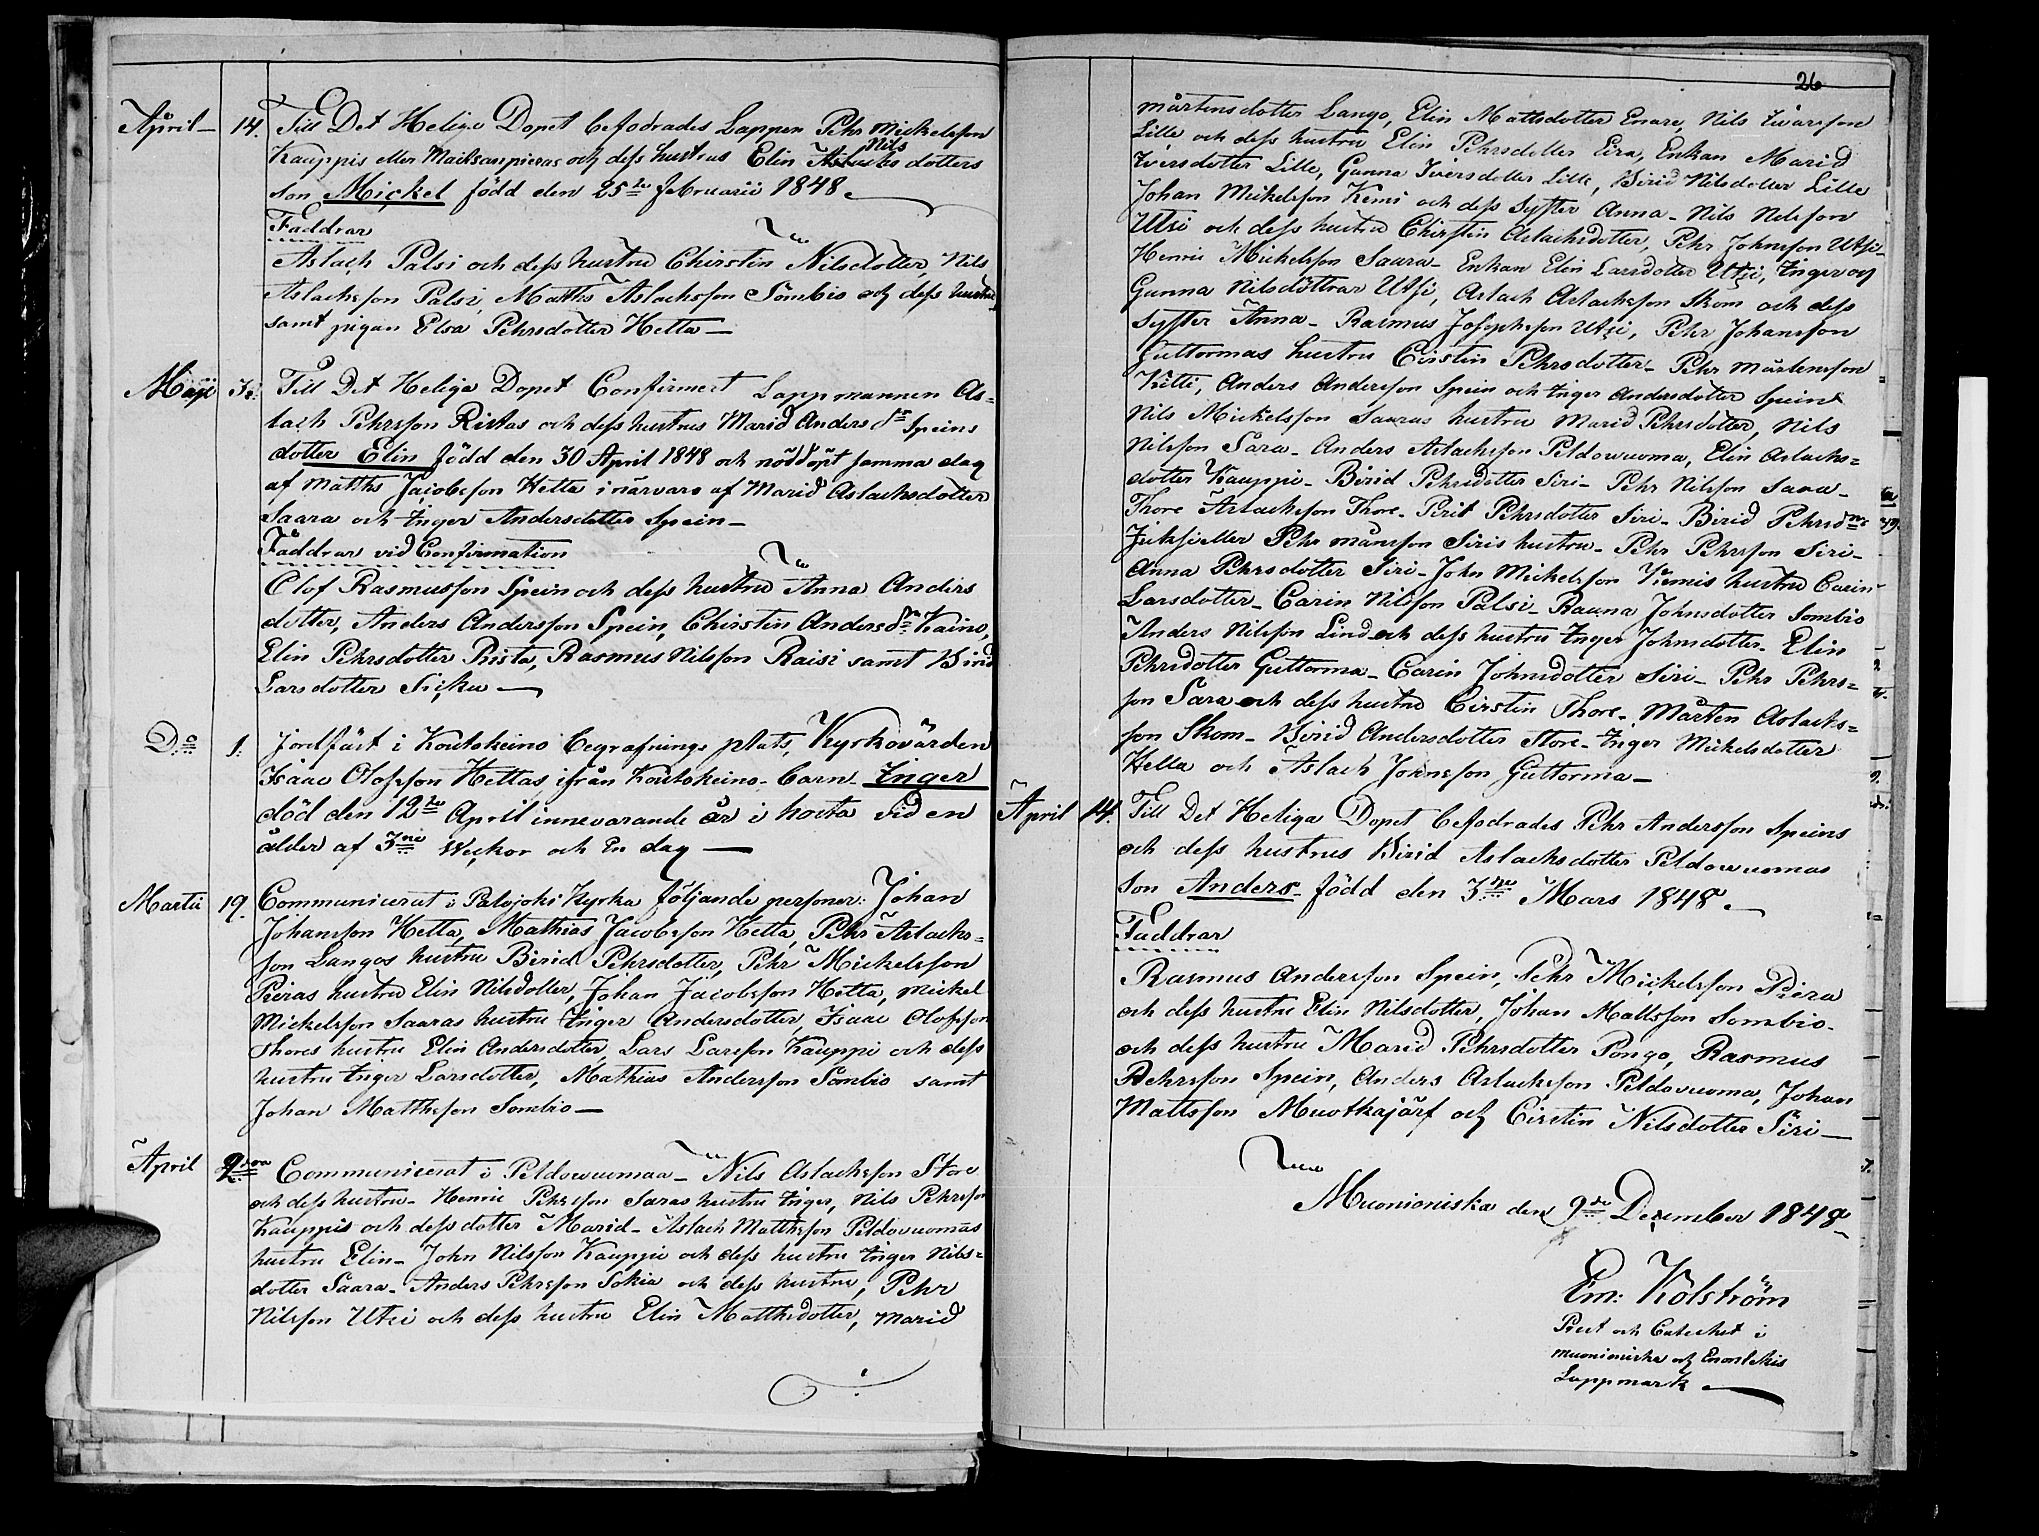 April – 14. Till Det Helige Dopet befodrades Lappen Pehr Mickelsson
Kauppis eller Maitsanpieras och dess hustrus Elin Nils Aslacks dotters
son Mickel född den 25te februarii 1848 –
Faddrar
Aslach Palsi och dess hustru Chirstin Nilsdotter, Nils
Aslacksson Palsi, Matths Aslacksson Sombio och dess hustru
samt pigan Elsa Pehrsdotter Hetta –
Maji Till Det Heliga Dopet Confirmert Lappmannen As=
lach Pehrsson Ristas och dess hustrus Marid Anders dr Speins
dotter Elin född den 30 April 1848 och nöddöpt samma dag
af Matths Jacobsson Hetta i närvaro af Marid Aslachsdotter
Saara och Inger Andersdotter Spein –
Faddrar vid Confirmation
Olof Rasmusson Spein och dess hustru Anna Anders
dotter, Anders Andersson Spein, Chirstin Anders dr Kaino,
Elin Pehrsdotter Rista, Rasmus Nilsson Raisi samt Birid
Larsdotter Sicku –
Do 1. Jordfäst i Koutokeino begrafnings plats, Kyrkovärden
Isaac Olofsson Hettas ifrån Koutokeino barn Inger
död den 12te April innevarande år i hosta vid en
ålder af 3ne Weckor och En dag –
Martii 19. Communicerat i Palojoki Kyrka följande personer: Johan
Johansson Hetta, Mathias Jacobsson Hetta, Pehr Aslacks=
son Langos hustru Birid Pehrsdotter, Pehr Mickelsson
Pieras hustru Elin Nilsdotter, Johan Jacobsson Hetta, Mickel
Mickelsson Saaras hustru Inger Andersdotter, Isaac Olofsson
Thores hustru Elin Andersdotter, Lars Larsson Kauppi och dess
hustru Inger Larsdotter, Mathias Andersson Sombio samt
Johan Matthsson Sombio –
April 2dra Communicerat i Peldowuomaa – Nils Aslacksson Store
och dess hustru – Henric Pehrsson Saras hustru Inger, Nils Pehrsson
Kauppis och dess dotter Marid – Aslach Matthsson Peldovuomas
hustru Elin – John Nilsson Kauppi och dess hustru Inger Nils=
dotter Saara – Anders Pehrsson Sokia och dess hustru, Pehr
Nilsson Utsi och dess hustru Elin Matthsdotter, Marid
26
Mårtensdotter Lango, Elin Mattsdotter Enare, Nils Iwarsson
Lille och dess hustru Elin Pehrsdotter Eira, Enkan Marid
Iversdotter Lille, Gunna Iversdotter Lille, Birid Nilsdotter Lille
Johan Mickelsson Kemi och dess syster Anna – Nils Nilsson
Utsi och dess hustru Chirstin Aslachsdotter, Pehr Johnsson Utsi –
Henric Mickelsson Saara – Enkan Elin Larsdotter Utsi, Inger och
Gunna Nilsdöttrar Utsi, Aslach Aslacksson Skom och dess
syster Anna – Rasmus Josephsson Utsi, Pehr Johansson
Guttormas hustru Cirstin Pehrsdotter – Pehr Mårtensson
Kitti, Anders Andersson Spein och Inger Andersdotter Spein
Nils Mickelsson Saaras hustru Marid Pehrsdotter, Nils
Nilsson Sara – Anders Aslacksson Peldowuoma, Elin Aslachs=
dotter Kauppi – Birid Pehrsdotter Siri – Pehr Nilsson Sara –
Thore Aslacksson Thore – Berit Pehrsdotter Siri – Birid Pehrsd
Pehr Månsson Siris hustru – Pehr Pehrsson Siri –
Anna Pehrsdotter Siri – John Mickelsson Kemis hustru Carin
Larsdotter – Carin Nilsson Palsi – Rauna Johnsdotter Sombio
Anders Nilsson Lind och dess hustru Inger Johnsdotter – Elin
Pehrsdotter Guttorma – Carin Johnsdotter Siri – Pehr Pehrs=
son Sara och dess hustru Cirstin Thore – Mårten Aslacks=
son Skom – Birid Andersdotter Store – Inger Mickelsdotter
Hetta och Aslach Johnsson Guttorma –
April 14. Till Det Heliga Dopet befodrades Pehr Andersson Speins
och dess hustrus Birid Aslachsdotter Peldowuomas
Son Anders född den 3ne Mars 1848 –
Faddrar
Rasmus Andersson Spein, Pehr Mickelsson Piera
och dess hustru Elin Nilsdotter, Johan Mattsson Sombio
och dess hustru Marid Pehrsdotter Pongo, Rasmus
Pehrsson Spein, Anders Aslacksson Peldovuoma, Johan
Mattsson Muotkajärf och Cirstin Nilsdotter Siri –
Muonioniska den 9de December 1848
Em: Kolström
Prest och Catechet i
Muonioniska och Enontekis
Lappmark –